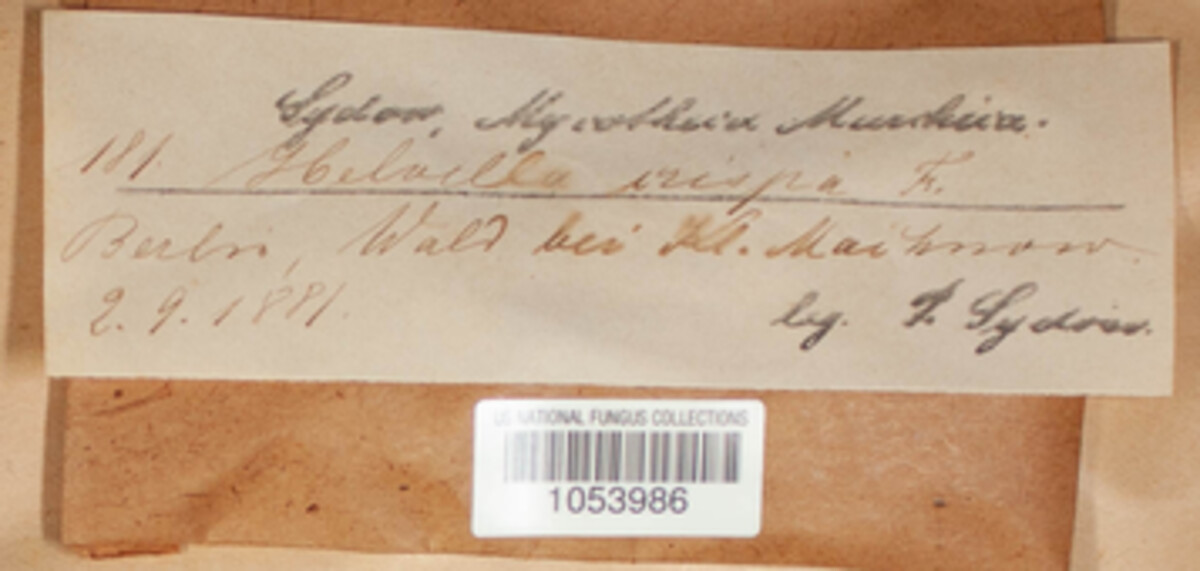 Sydow, Mycotheca Marchica.
181. Helvella crispa Fr.
Berlin, Wald bei Kl. Machnow.
2. 9. 1881.
leg. P. Sydow.
US NATIONAL FUNGUS COLLECTIONS
1053986